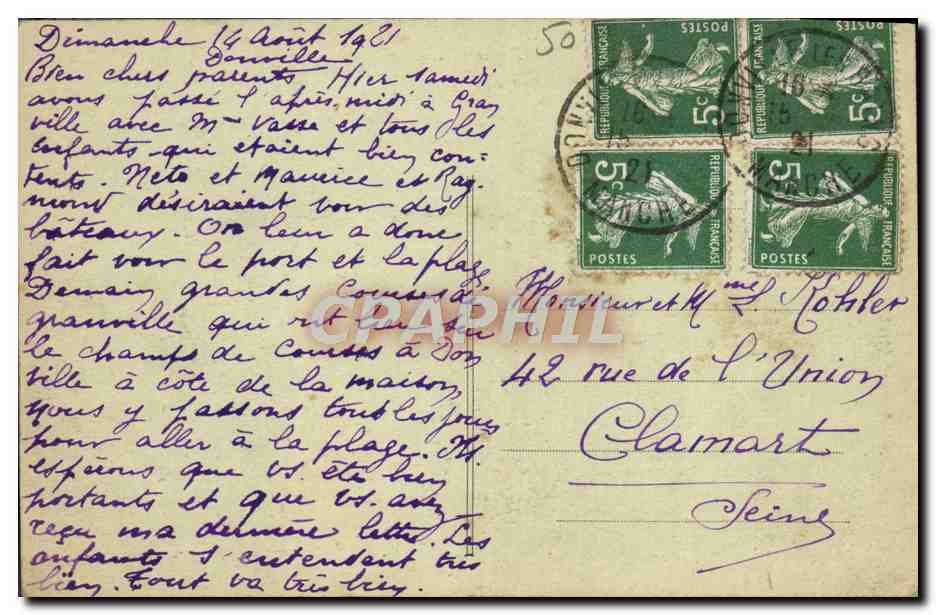 Dimanche 14 Août 1921
Donville
Bien chers parents Hier samedi
avons passé l'après midi à Gran
ville avec Mme Vasse et tous les
enfants qui étaient bien con-
tents. Neto et Maurice et Ray
mond désiraient voir des
bâteaux. On leur a donc
fait voir le port et la plage
Demain grandes courses de
granville qui ont lieu sur
le champs de courses à Don
ville à côte de la maison,
nous y passons tout les jours
pour aller à la plage. Ns.
espérons que vs. êtes bien
portants et que vs. avez
reçu ma dernière lettre. Les
enfants s'entendent très
bien. Tout va très bien.
50
REPUBLIQUE FRANÇAISE
POSTES
5c
REPUBLIQUE FRANÇAISE
POSTES
5c
5c
REPUBLIQUE FRANÇAISE
POSTES
5c
REPUBLIQUE FRANÇAISE
POSTES
16
15
21
MANCHE
16
15
21
MANCHE
Monsieur et Mme L. Kohler
42 rue de l'Union
Clamart
Seine
CPAPHIL